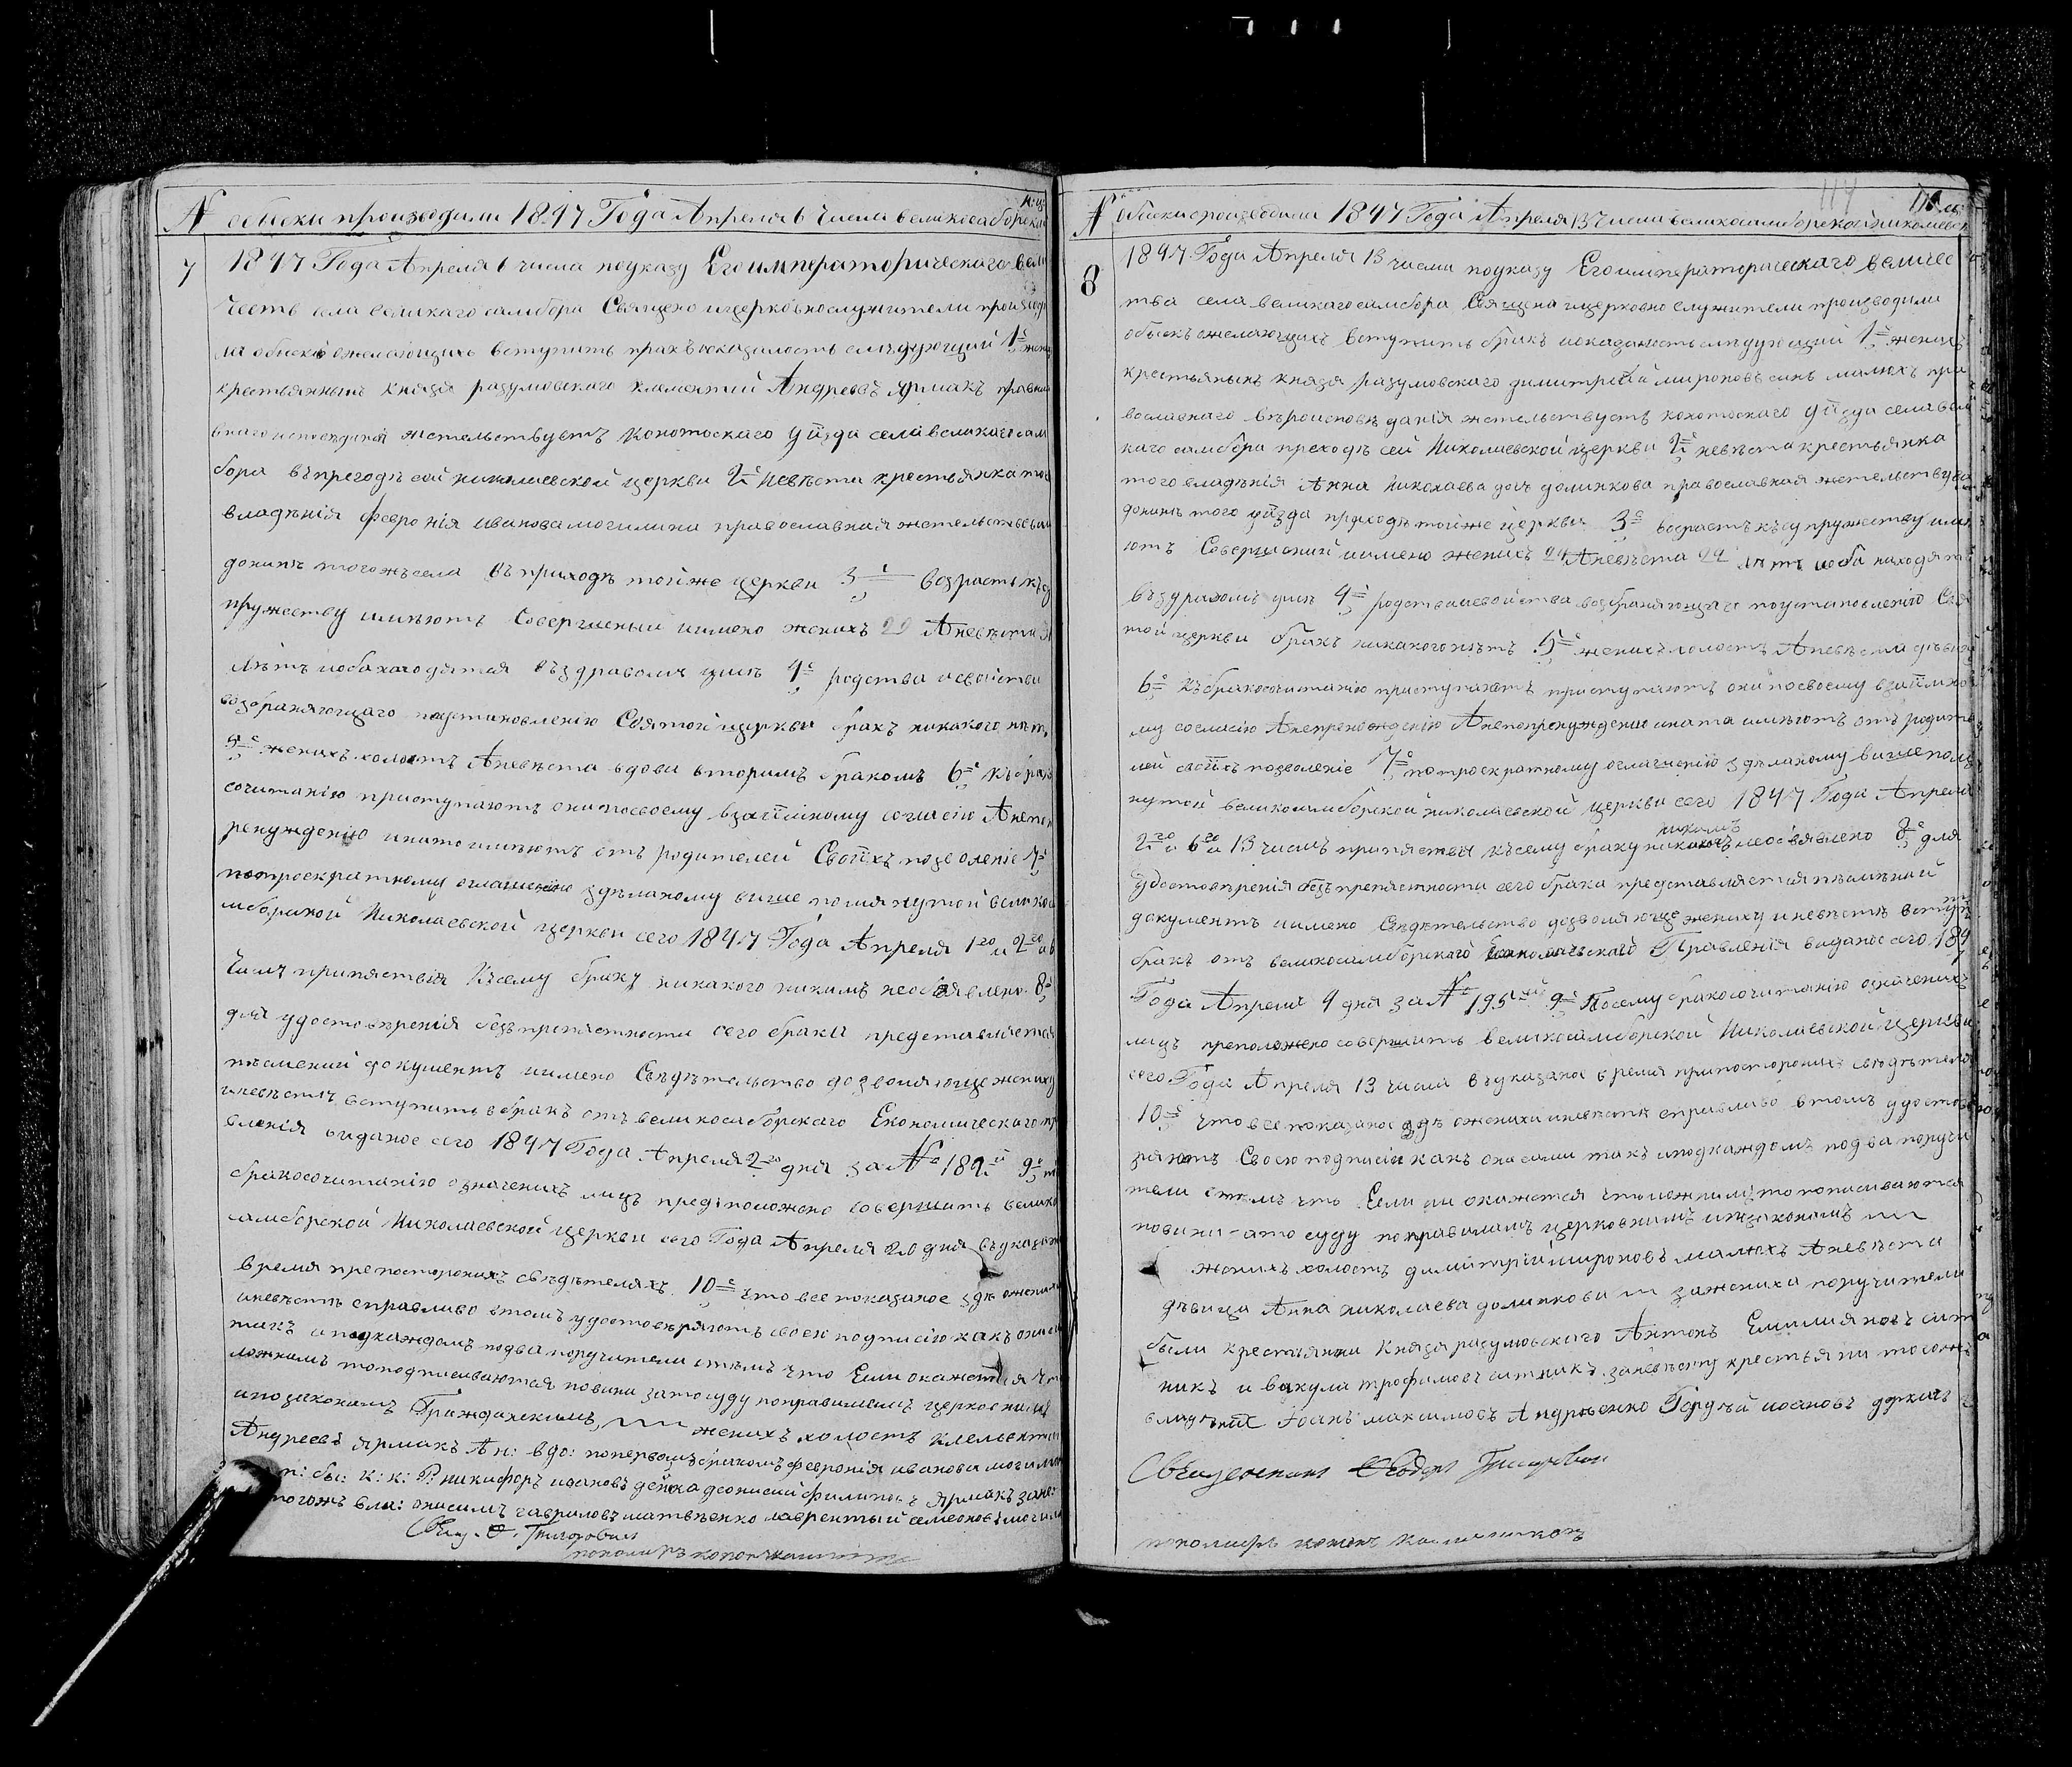 № обиски производили 1847 Года Апреля 6 числа великосаборской
7
1847 Года Апреля 6 числа поуказу Его императорическаго вели
честв села великаго самбора Священо ицерковнослужители производи
ли обискъ ожелающихъ вступить
крестьянынъ князя разумовского Климентий Андреевъ Ярмакъ
жетельствуетъ конотоскаго уѣзда села великаго сам
бора въ преходѣ сей николаевской церкви 2е невѣста крестьянка того
владѣнія феврония иванова могилина православная жетельств
донинѣ тогожъ села въ приходѣ тойже церкви 3е возрастъ къ су
пружеству имѣютъ Совершеный иимено женихъ 29 Аневѣста
лѣтъ иоба находятся въздравомъ умѣ 4е родства исвойства
возбраняющаго поустановленію Святой церкви бракъ никакого нѣтъ
5е женихъ холостъ Аневѣста вдова вторимъ бракомъ 6е къ брако
сочитанію приступаютъ они посвоему взаймному согласію Анепоп
ренужденію инато имѣютъ отъ родителей Своихъ позволеніе 7е
потроекратному оглашению здѣланому више помянутой велико
мборской Николаевской церкви сего 1847 Года Апреля 1го и 2го и 6
числъ припятствія Ксему браку никакого никимъ необявлено 8е
для удостовѣренія безъпрепятности сего брака представляется
пѣсмений документъ иимено Свѣдѣтельство дозволяюще жениху
иневѣстѣ вступить вбракъ отъ великосаборского Економическаго пр
вленія виданое сего 1847 Года Апреля 2го дня за № 189й 9е
бракосочитанію означенихъ лицъ предположено совершить велико
самборской Николаевской церкви сего Года Апреля 20 дня въуказан
время препосторонихъ свѣдѣтеляхъ 10е что все показаное здѣ ожених
иневѣстѣ справливо втомъ удостовѣряютъ своею подписію какъ они
такъ иподкаждомъ подва поручители стѣмъ что Если окажется что
ложнимъ топодписиваются повини зато суду поправиламъ церковнимъ
ипозаконамъ Гражданскимъ женихъ холостъ Клементий
Андреевъ Ярмакъ Ан: вдо: поперво бракомъ феврония иванова могили
п: бы: к: к: Р: никифоръ ивановъ дейка филиповъ Ярмакъ зане:
тогожъ вла: онисимъ гавриловъ матвѣенко лаврентый семеоновъ могили
Свящ. Ѳ. Григоровичъ
№ обиски производили 1847 Года Апреля 13 числа великосамборской николаевск
8
1847 Года Апреля 13 числа поуказу Его императорическаго величес
тва села великаго самбора Священо ицерковно служители производили
обискъ ожелающихъ вступить бракъ иоказалость слѣдующий 1е женихъ
крестьянынъ князя разумовского димитрий мироновъ синъ малюхъ пра
вославнаго вѣроисповѣданія жетельствуетъ конотоскаго уѣзда села вели
каго самбора преходѣ сей Николаевской церкви 2е невѣста крестьянка
того владѣнія Анна Николаева дочь долинкова православная жетельствуе
донинѣ того уѣзда приходѣ тойже церкви 3е возрастъ къ супружеству имѣ
ютъ Совершоний иимено женихъ 24 Аневѣста 22 лѣтъ иоба находятся
въздравомъ умѣ 4е родства исвойства возбраняющаго поустановленію Свя
той церкви бракъ никакого нѣтъ 5е женихъ холостъ Аневѣста дѣвица
6е къ бракосочитанію приступаютъ приступаютъ они посвоему взаймно
му согласію Анепрену Анепопренуждению ината имѣютъ отъ родите
лей своихъ позволеніе 7е потроекратному оглашенію здѣланому вишепомя
нутой великосамборской николаевской церкви сего 1847 Года Апреля
2го и 6го и 13 числъ припятствія къ сему браку никимъ необявлено 8е для
удостовѣренія безъпрепятности сего брака представляется пѣсмений
документъ иимено Свѣдѣтельство дозволяюще жениху иневѣстѣ вступить
бракъ отъ великосамборского Правленія виданое сего 1847
Года Апреля 9 дня за № 195й 9е Посему бракосочитанію означенихъ
лицъ преположено совершить великосамборской Николаевской церкви
сего Года Апреля 13 числа въуказаное время припосторонихъ свѣдѣтелях
10е что все показаное здѣ ожениха иневѣстѣ справливо втомъ удостовѣ
ряютъ Своею подписію какъ они сами такъ иподкаждомъ подва поручи
тели стѣмъ что Если ли окажется что ложнимъ топописиваются
повини зато суду поправиламъ церковнимъ изаконамъ
женихъ холостъ димитрий мироновъ малюхъ Аневѣста
дѣвица Анна николаева долинкова зажениха поручители
были крестьянни Князя разумовского Антонъ Емилияновъ сит
никъ и вакула трофимовъ ситникъ заневѣсту крестьяни тогожъ
владѣния Іоанъ максимовъ Андрѣенко Гордѣй ивановъ деркачъ
Священникъ Ѳеодоръ Григоровичъ